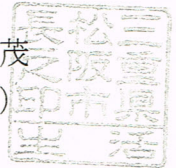 茂
)
三重県
松阪市
長之印
生活